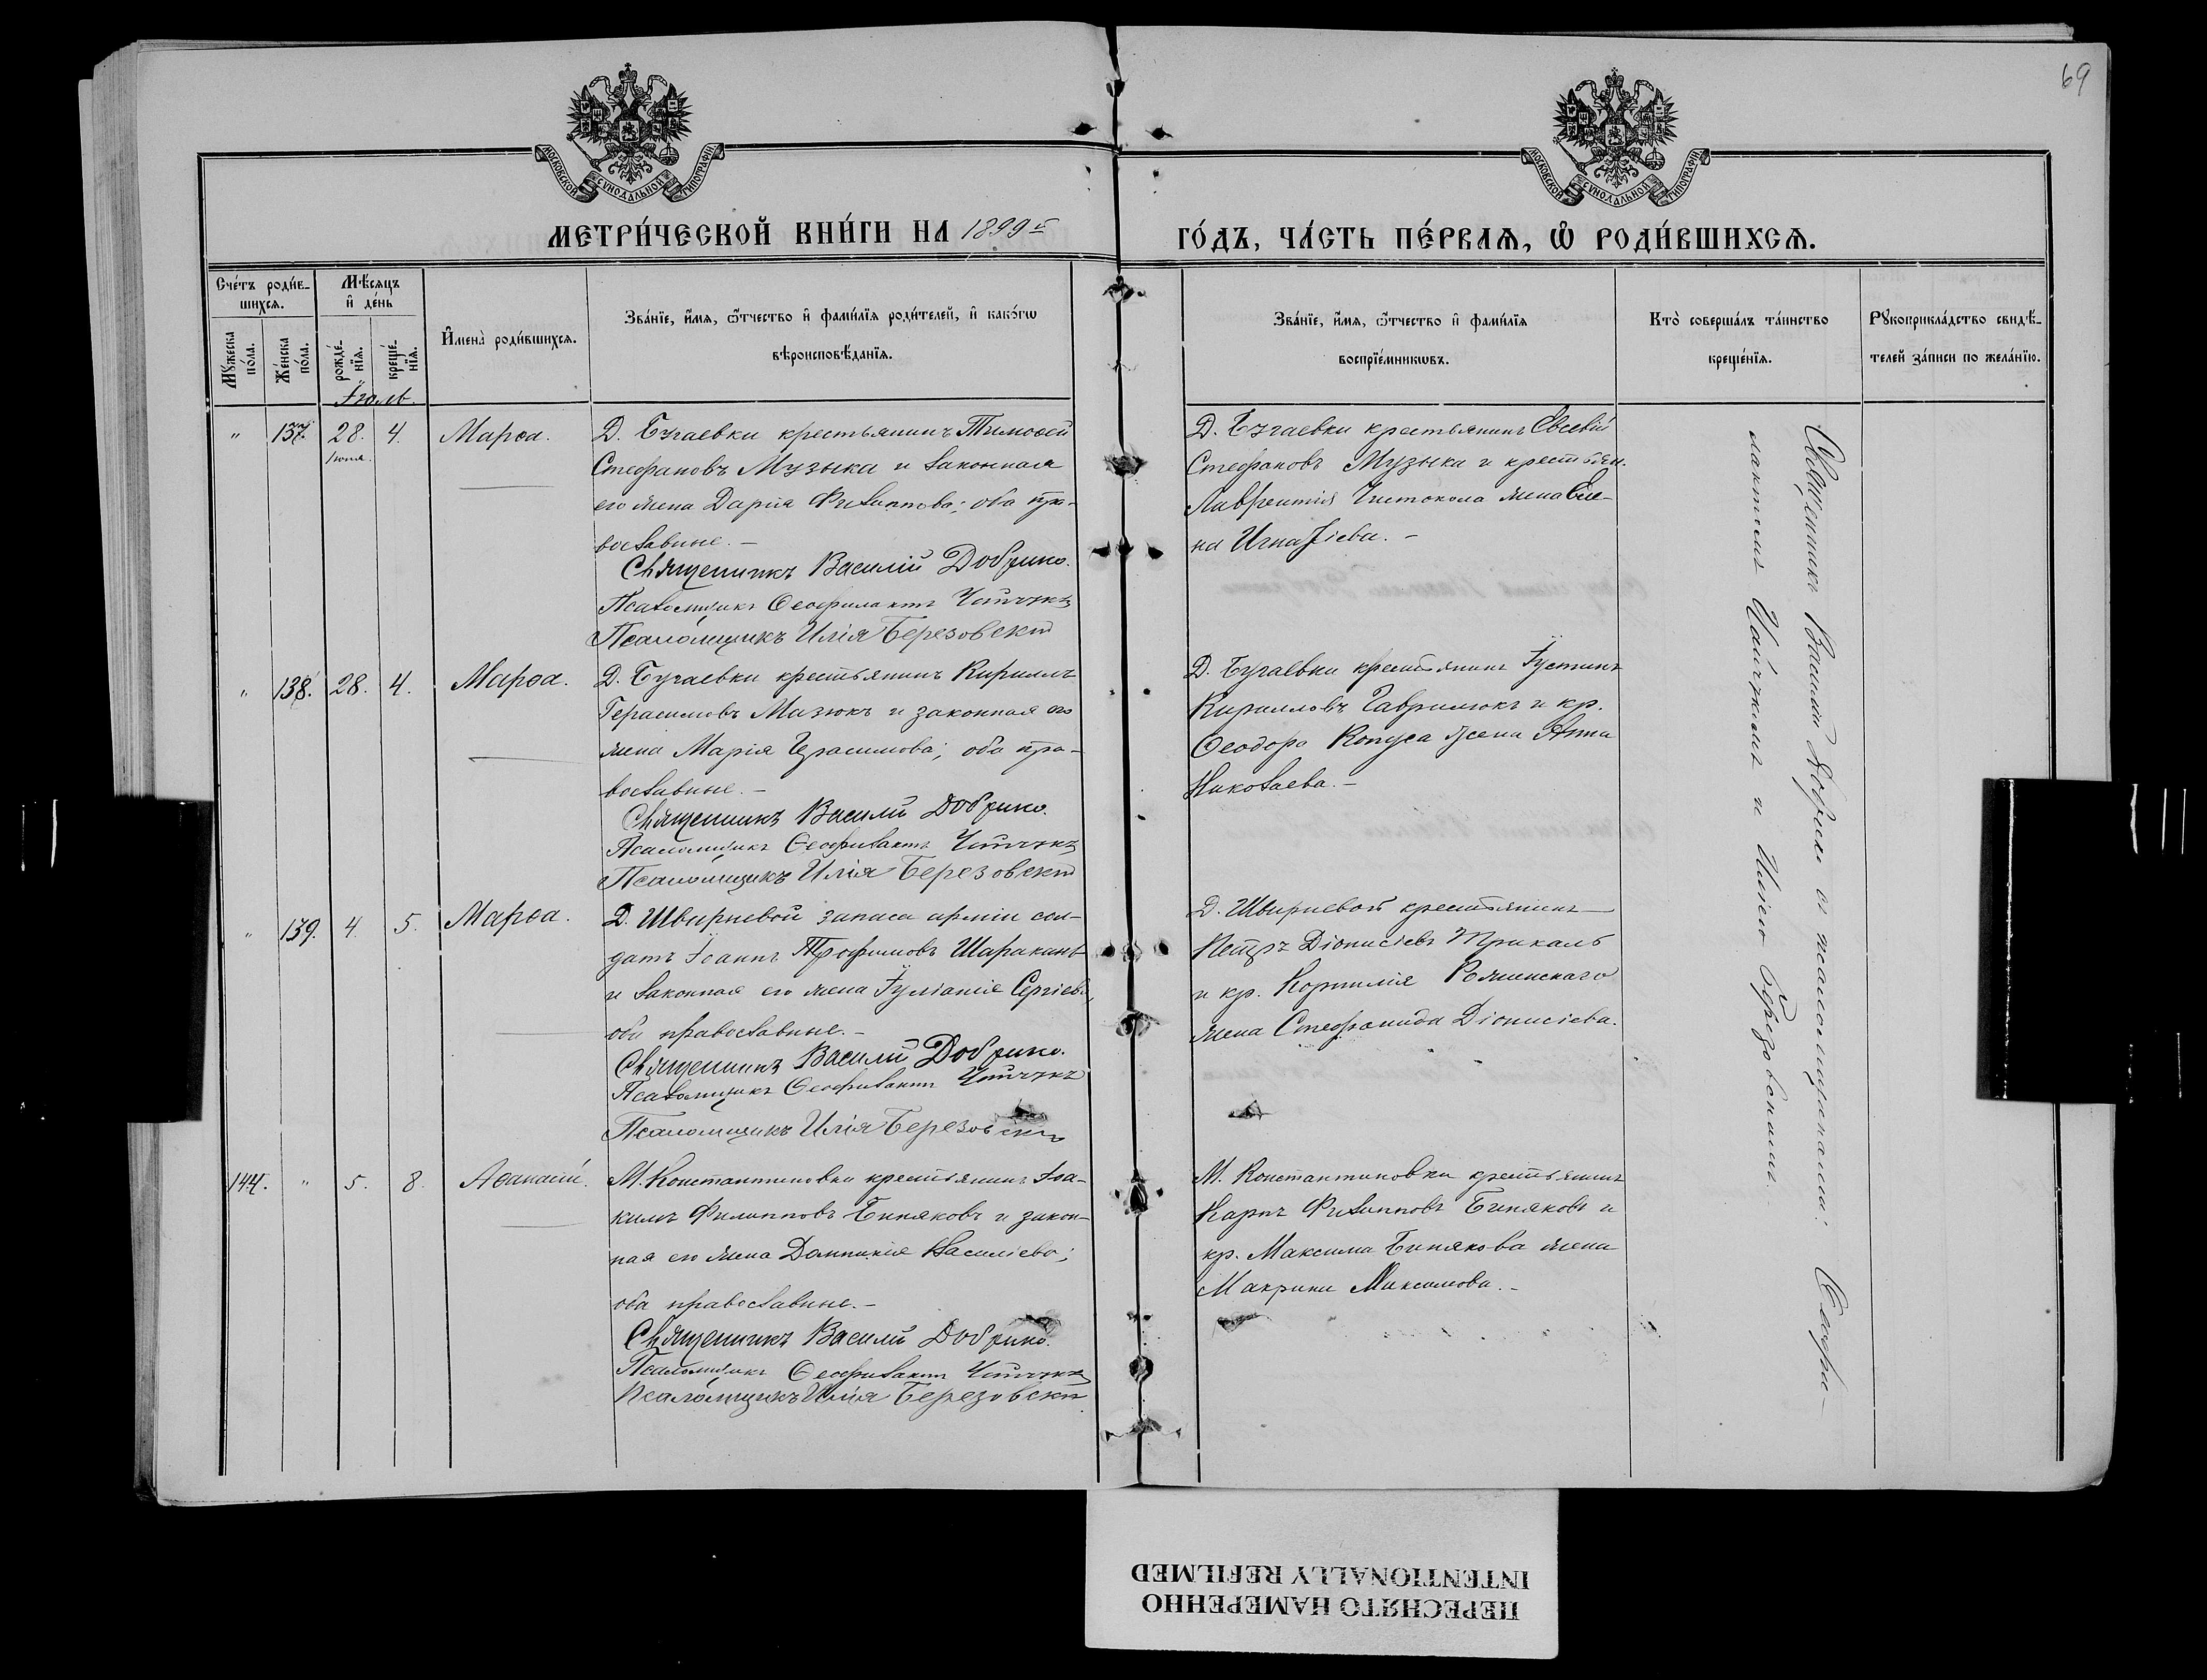 69
МОСКОВСКОЙ СѴНОДАЛЬНОЙ ТИПОГРАФІИ
МОСКОВСКОЙ СѴНОДАЛЬНОЙ ТИПОГРАФІИ
МЕТРИ́ЧЕСКОЙ КНИ́ГИ НА 1899й
ГО́ДЪ, ЧА́СТЬ ПЕ́РВАЯ, Ѡ РОДИ́ВШИХСЯ.
Сче́тъ роди́в-
шихся.
Мꙋ́жеска по́ла.
Же́нска по́ла.
Мѣ́сяцъ
и҆ де́нь
рожде́-
нїя.
креще́-
нїя.
И҆мена̀ роди́вшихся.
Зва́нїе, и҆́мя, ѻ҆́тчество и҆ фами́лїя роди́телей, и҆ како́гѡ
вѣроисповѣ́данїя.
Зва́нїе, и҆́мя, ѻ҆́тчество и҆ фами́лїя
воспрїе́мникѡвъ.
Кто̀ соверша́лъ та́инство
креще́нїя.
Рꙋкоприкла́дство свидѣ́-
телей за́писи по жела́нїю.
Іюль.
" 137. 28. 4. Марѳа.
Іюня.
Д. Бугаевки крестьянинъ Тимоѳей
Стефановъ Музыка и законная
его жена Дарія Филиппова; оба пра-
вославные. –
Священникъ Василій Добрико.
Псаломщикъ Ѳеофилактъ
Псаломщикъ Илія Березовскій
Д. Бугаевки крестьянинъ Евсевій
Стефановъ Музыка и крестьян.
Лаврентія Чистокола жена Еле-
на Игнатіева. –
" 138. 28. 4. Марѳа.
Д. Бугаевки крестьянинъ Кириллъ
Герасимовъ Мазюкъ и законная его
жена Марія Герасимова; оба пра-
вославные. –
Священникъ Василій Добрико.
Псаломщикъ Ѳеофилактъ
Псаломщикъ Илія Березовскій
Д. Бугаевки крестьянинъ Іустинъ
Кирилловъ Гаврилюкъ и кр.
Ѳеодора Копуса жена Анна
Николаева. –
" 139. 4. 5. Марѳа.
Д. Швырневой запаса арміи сол-
датъ Іоаннъ Трофимовъ Шаракинъ
и законная его жена Іуліанія Сергіева,
оба православные. –
Священникъ Василій Добрико.
Псаломщикъ Ѳеофилактъ
Псаломщикъ Илія Березовскій
Д. Швырневой крестьянинъ
Петръ Діонисіевъ Прикаль
и кр. Корнилія
жена Стефанида Діонисіева.
144. " 5. 8. Аѳанасій.
М. Константиновки крестьянинъ Іоа-
кимъ Филипповъ Биняковъ и закон-
ная его жена Домникія Василіева;
оба православные. –
Священникъ Василій Добрико.
Псаломщикъ Ѳеофилактъ
Псаломщикъ Илія Березовскій
М. Константиновки крестьянинъ
Карпъ Филипповъ Биняковъ и
кр. Максима Бинякова жена
Макрина Максимова. –
Священникъ Василій Добрико съ псаломщиками: Ѳеофи-
лактомъ и Иліею Березовскимъ.
ПЕРЕСНЯТО НАМЕРЕННО
INTENTIONALLY REFILMED